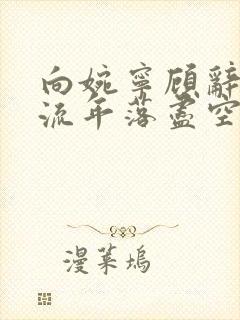 向婉寧顧辭
流年落盡空
漫菜塢